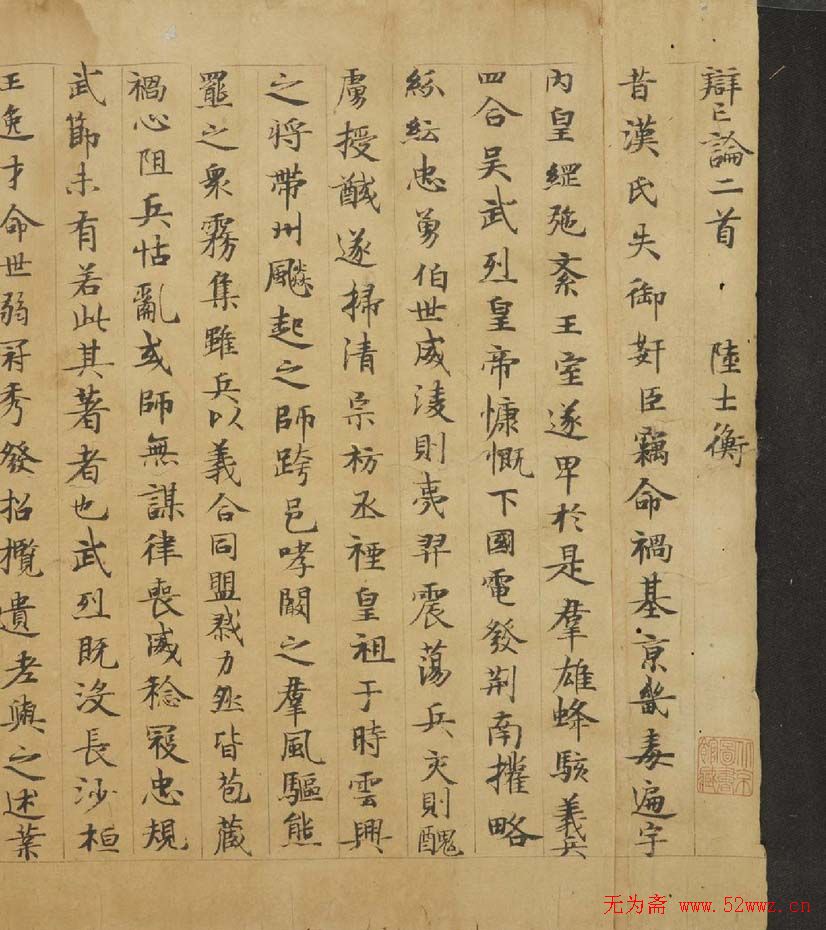 辯亡論二首 陸士衡
昔漢氏失御奸臣竊命禍基京畿毒遍宇
內皇綱弛紊王室遂卑於是羣雄蜂駭義兵
四合吴武烈皇帝慷慨下國電發荆南㩲略
紛紜忠勇伯世威淩則夷羿震蕩兵交則醜
虜授馘遂掃清宗枋丞禋皇祖于時雲興
之將帶州飈起之師跨邑哮闞之羣風驅熊
羆之衆霧集雖兵以義合同盟戮力然皆苞藏
禍心阻兵怙亂或師無謀律喪威稔寇忠規
武節未有若此其著者也武烈既没長沙桓
王逸才命世弱冠秀發招攬遺老與之述業
无为斋 www.52wwz.cn